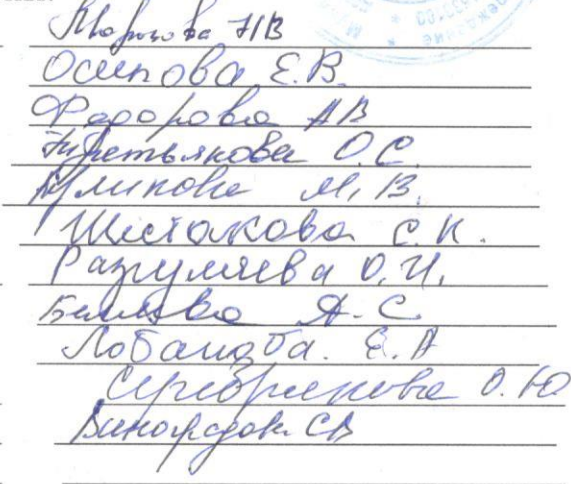 Морозова НВ
Осипова Е.В.
Федорова АВ
Третьякова О.С.
Куликова М.В.
Шестакова С.К.
Разгуляева О.И.
Беляева А.С
Лобанова. Е.А
Серебрякова О.Ю
Виноградов СВ